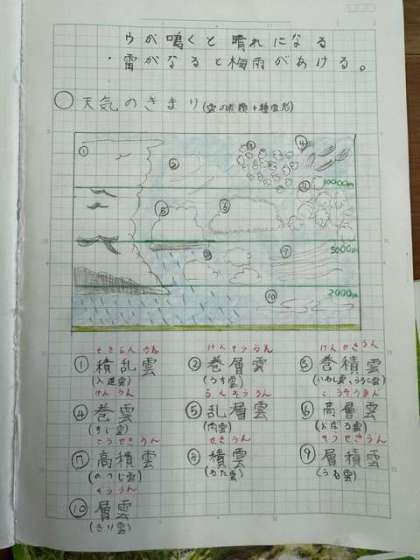 ウが鳴くと晴れになる
・雷がなると梅雨があける。
○天気のきまり
① ② ③ ④
10000m
⑤ ⑥
5000m
⑧
2000m
⑩
せきらんうん けんそううん けんせきうん
①積乱雲 ②巻層雲 ③巻積雲
(入道雲) (うす雲)
けんうん らんそううん こうそううん
④巻雲 ⑤乱層雲 ⑥高層雲
(すじ雲) (雨雲) (おぼろ雲)
こうせきうん せきうん そうせきうん
⑦高積雲 ⑧積雲 ⑨層積雲
(ひつじ雲) (わた雲) (うね雲)
そううん
⑩層雲
(きり雲)